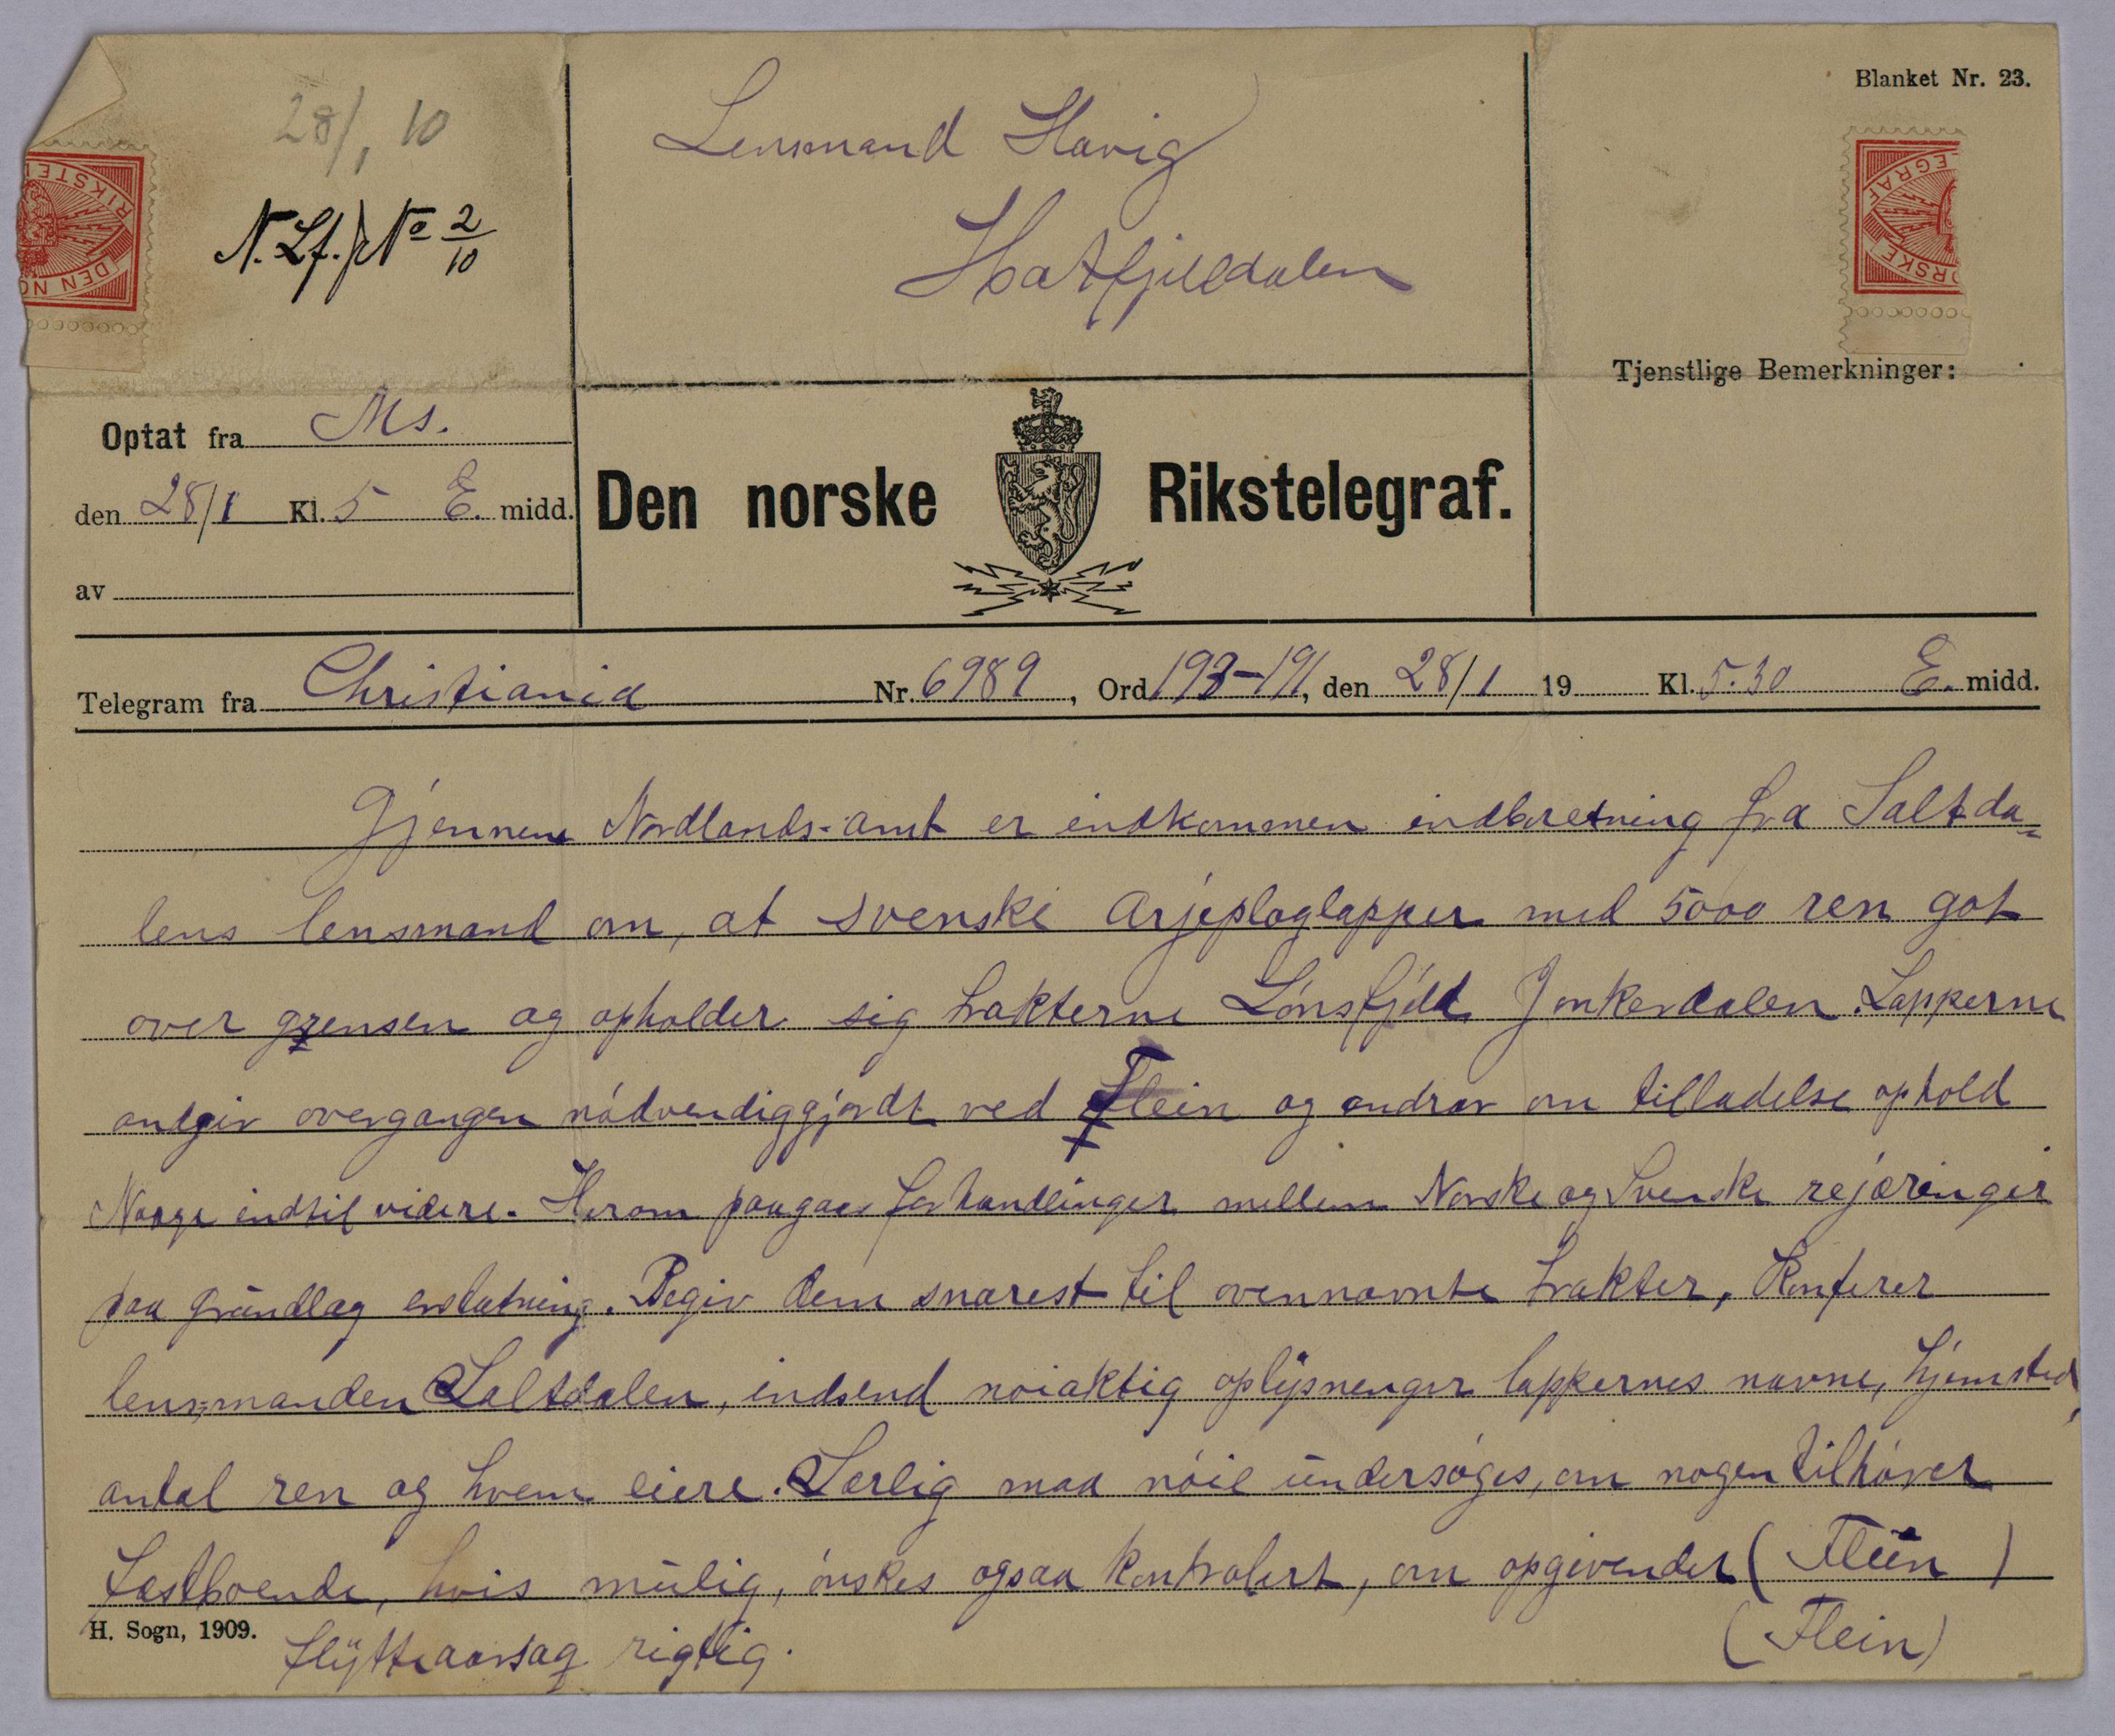 28/1 10
N. Lf. j No 2/10
Lensmand Havig
Hatfjelldalen
Blanket Nr. 23.
Tjenstlige Bemerkninger:
Optat fra Ms.
den 28/1 Kl. 5 E. midd.
av
Den norske Rikstelegraf.
Telegram fra Christiania Nr. 6989, Ord 193-191, den 28/1 19 Kl. 5.30 E. midd.
Gjennem Nordlands-amt er indkommen indberetning fra Saltda-
lens lensmand om, at svenske Arjeploglapper med 5000 ren gaat
over grensen og opholder sig trakterne Lönsfjeld Junkerdalen. Lapperne
angir overgangen nödvendiggjordt ved Flein og andrar om tilladelse ophold
Norge indtil videre. Herom paagaar forhandlinger mellem Norske og Svenske rejæringer
paa grundlag erstatning. Begiv dem snarest til ovennævnte trakter, Konferer
lensmanden Saltdalen, indsend nöiaktig oplysninger lappernes navne, hjemsted,
antal ren og hvem eiere. Særlig maa nöie undersöges, om nogen tilhörer
fastboende, hvis mulig, önskes ogsaa kontrolert, om opgivender (Flein)
H. Sogn, 1909. flytteaarsag rigtig. (Flein)